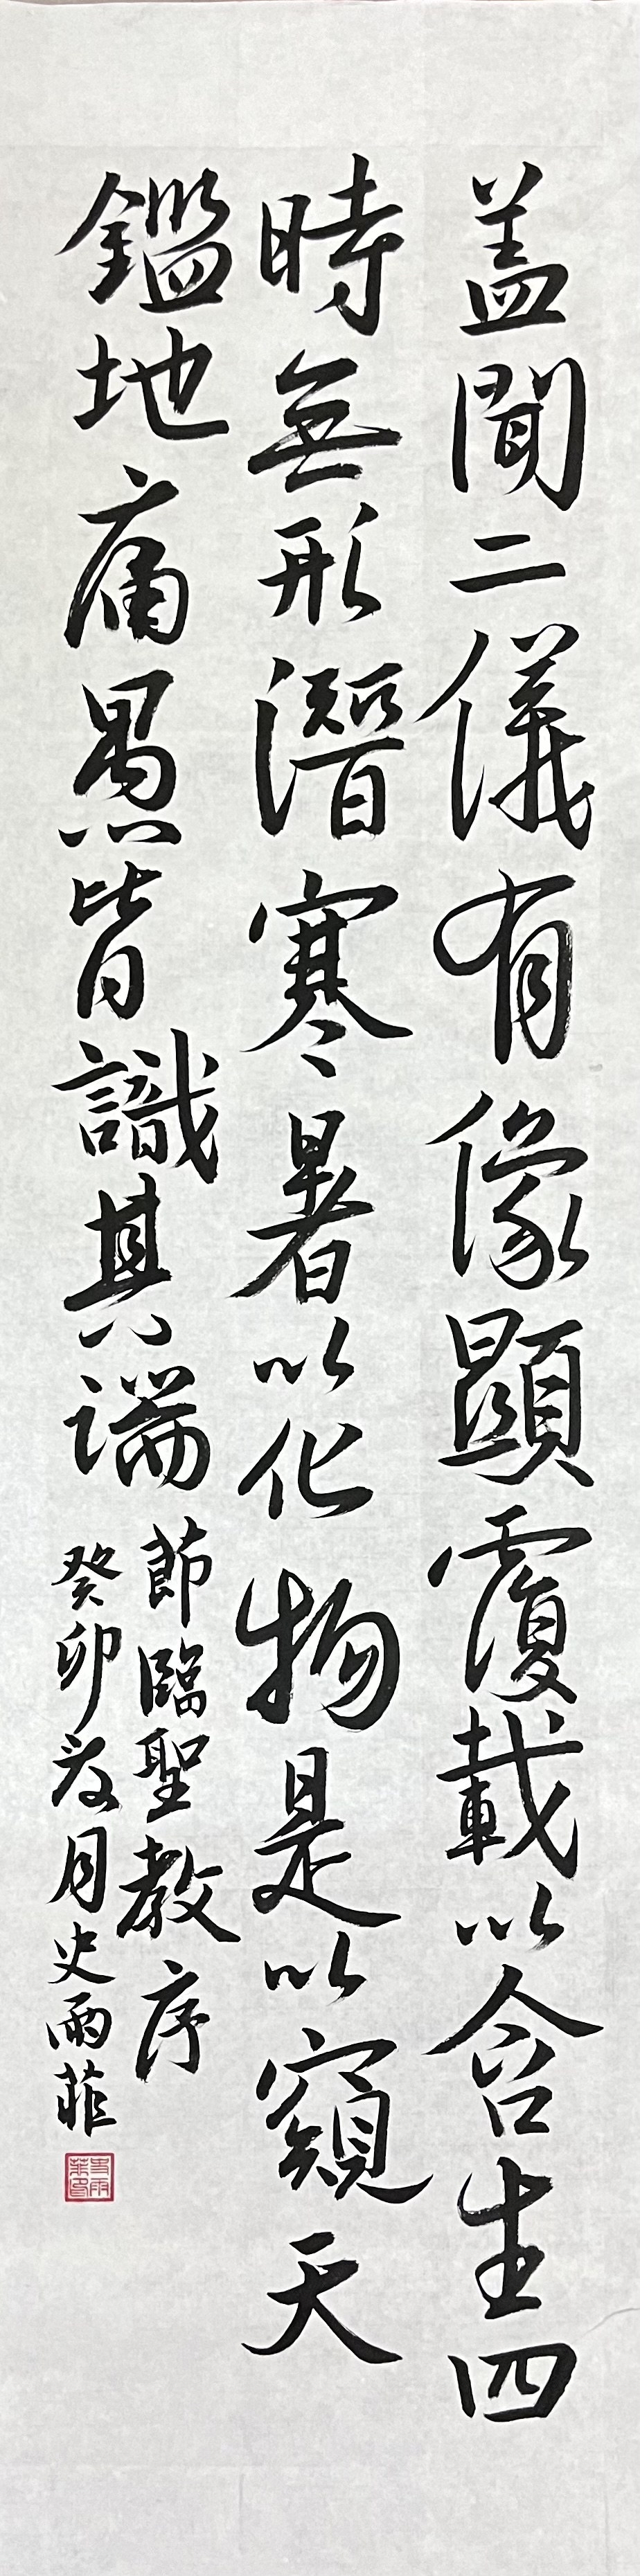 盖聞二儀有像顯覆載以含生四
時無形潛寒暑以化物是以窺天
鑑地庸愚皆識其端
節臨聖教序
癸卯夏月史雨菲